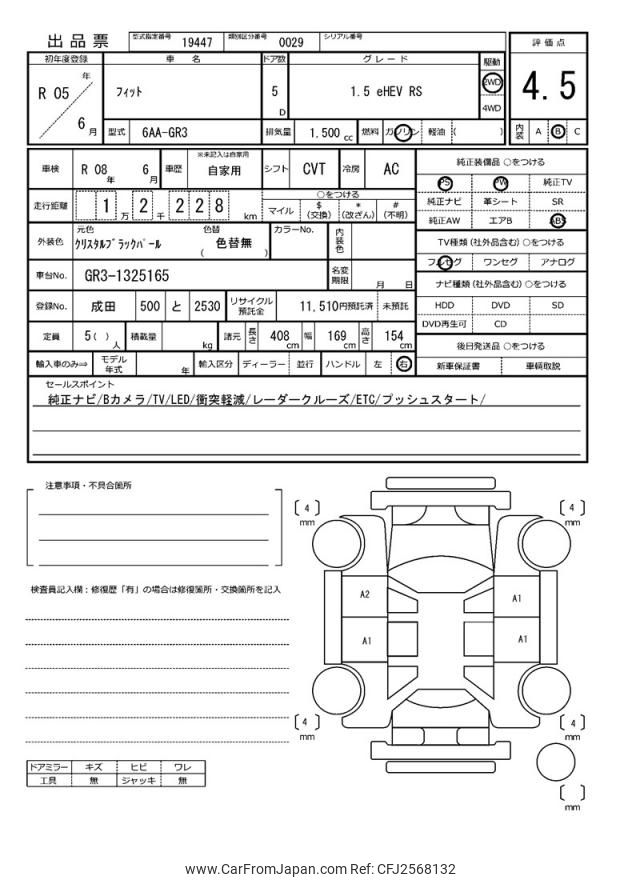 出品票 型式指定番号 19447 類別区分番号 0029 シリアル番号
初年度登録 車名 ドア数 グレード 駆動 評価点
R 05 年 6 月 フィット 5 D 1.5 eHEV RS 2WD 4WD 4.5
型式 6AA-GR3 排気量 1.500 cc 燃料 ガソリン 軽油 ( ) 内装 A B C
車検 R 08 年 6 月 車歴 ※未記入は自家用 自家用 シフト CVT 冷房 AC
走行距離 1 万 2 千 2 2 8 km ○をつける マイル $ (交換) * (改ざん) # (不明)
外装色 元色 クリスタルブラックパール 色替 ( 色替無 ) カラーNo. 内装色
車台No. GR3-1325165 名変期限 月 日
登録No. 成田 500 と 2530 リサイクル預託金 11,510円預託済 未預託
定員 5( ) 人 積載量 kg 諸元 長さ 408 cm 幅 169 cm 高さ 154 cm
輸入車のみ⇒ モデル年式 年 輸入区分 ディーラー 並行 ハンドル 左 右
純正装備品 ○をつける
PS PW 純正TV
純正ナビ 革シート SR
純正AW エアB ABS
TV種類 (社外品含む) ○をつける
フルセグ ワンセグ アナログ
ナビ種類 (社外品含む) ○をつける
HDD DVD SD
DVD再生可 CD
後日発送品 ○をつける
新車保証書 車輌取説
セールスポイント
純正ナビ/Bカメラ/TV/LED/衝突軽減/レーダークルーズ/ETC/プッシュスタート/
注意事項・不具合箇所
検査員記入欄：修復歴「有」の場合は修復箇所・交換箇所を記入
[ 4 ] mm [ 4 ] mm
A2 A1
A1 A1
[ 4 ] mm [ 4 ] mm
[ ] mm
ドアミラー キズ ヒビ ワレ
工具 無 ジャッキ 無
www.CarFromJapan.com Ref: CFJ2568132